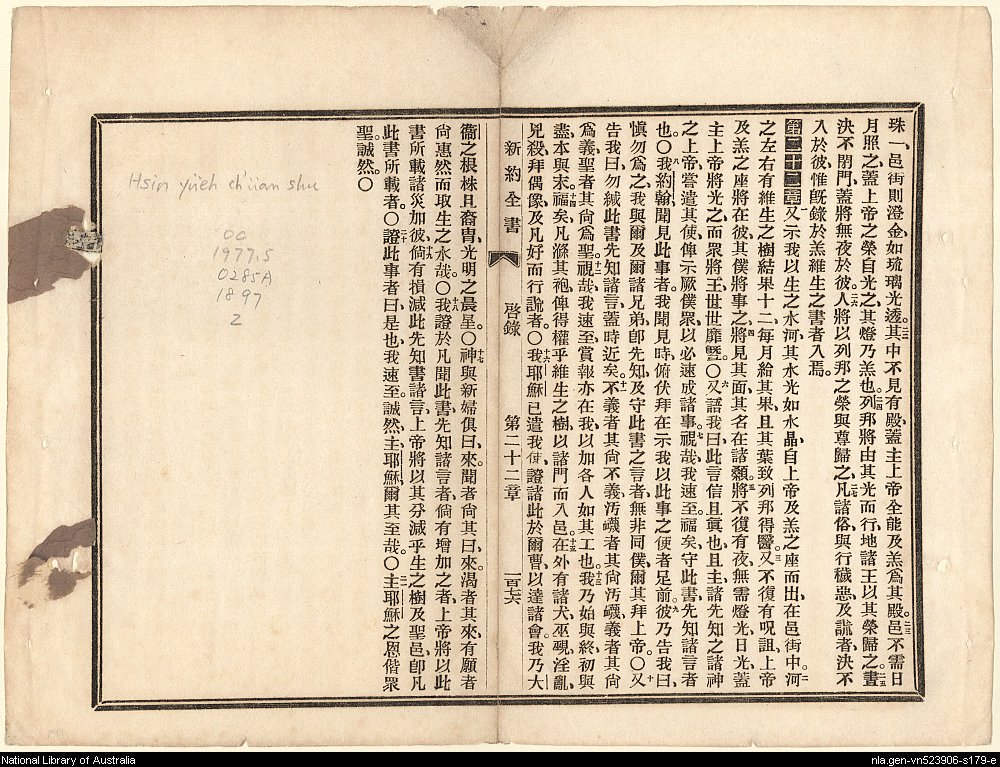 珠、一邑街則澄金、如琉璃光透。二二其中不見有殿、蓋主上帝全能及羔為其殿。二三邑不需日
月照之、蓋上帝之榮自光之、其燈乃羔也。二四列邦將由其光而行、地諸王以其榮歸之。二五晝
決不閉門、蓋將無夜於彼。二六人將以列邦之榮與尊歸之、二七凡諸俗與行穢惡及謊者、決不
入於彼、惟既錄於羔維生之書者入焉。
第二十二章一又示我以生之水河、其水光如水晶、自上帝及羔之座而出、在邑街中。二河
之左右有維生之樹、結果十二、每月給其果、且其葉致列邦得醫。三又不復有呪詛、上帝
及羔之座將在彼、其僕將事之、四將見其面、其名在諸額。五將不復有夜、無需燈光日光、蓋
主上帝將光之、而眾將王世世靡曁。〇六又語我曰、此言信且眞也、且主諸先知之諸神
之上帝嘗遣其使、俾示厥僕眾以必速成諸事。七視哉、我速至、福矣守此書先知諸言者
也。〇八我約翰聞見此事者、我聞見時俯伏拜在示我以此事之使者足前。九彼乃告我曰、
愼勿為之、我與爾及爾諸兄弟卽先知及守此書之言者無非同僕、爾其拜上帝。〇十又
告我曰、勿緘此書先知諸言、蓋時近矣。十一不義者其尙不義、汚衊者其尙汚衊、義者其尙
為義、聖者其尙為聖。十二視哉、我速至、賞報亦在我、以加各人如其工也。十三我乃始與終、初與
盡、本與末。十四福矣凡滌其袍、俾得權乎維生之樹、以諸門而入邑。十五在外有諸犬、巫覡、淫亂、
兇殺、拜偶像、及凡好而行謊者。〇十六我耶穌已遣我使證諸此於爾曹、以達諸會。我乃大
新約全書 啓錄 第二十二章 一百七六
衞之根株且裔胄、光明之晨星。〇十七神與新婦俱曰、來、聞者尙其曰、來、渴者其來、有願者
尙惠然而取生之水哉。〇十八我證於凡聞此書先知諸言者、倘有增加之者、上帝將以此
書所載諸災加彼。十九倘有損減此先知書諸言、上帝將以其分減乎生之樹及聖邑、卽凡
此書所載者。〇二十證此事者曰、是也、我速至、誠然、主耶穌爾其至哉。〇二一主耶穌之恩偕眾
聖、誠然。〇
Hsin yüeh ch'üan shu
OC
1977.5
0285A
1897
2
National Library of Australia
nla.gen-vn523906-s179-e